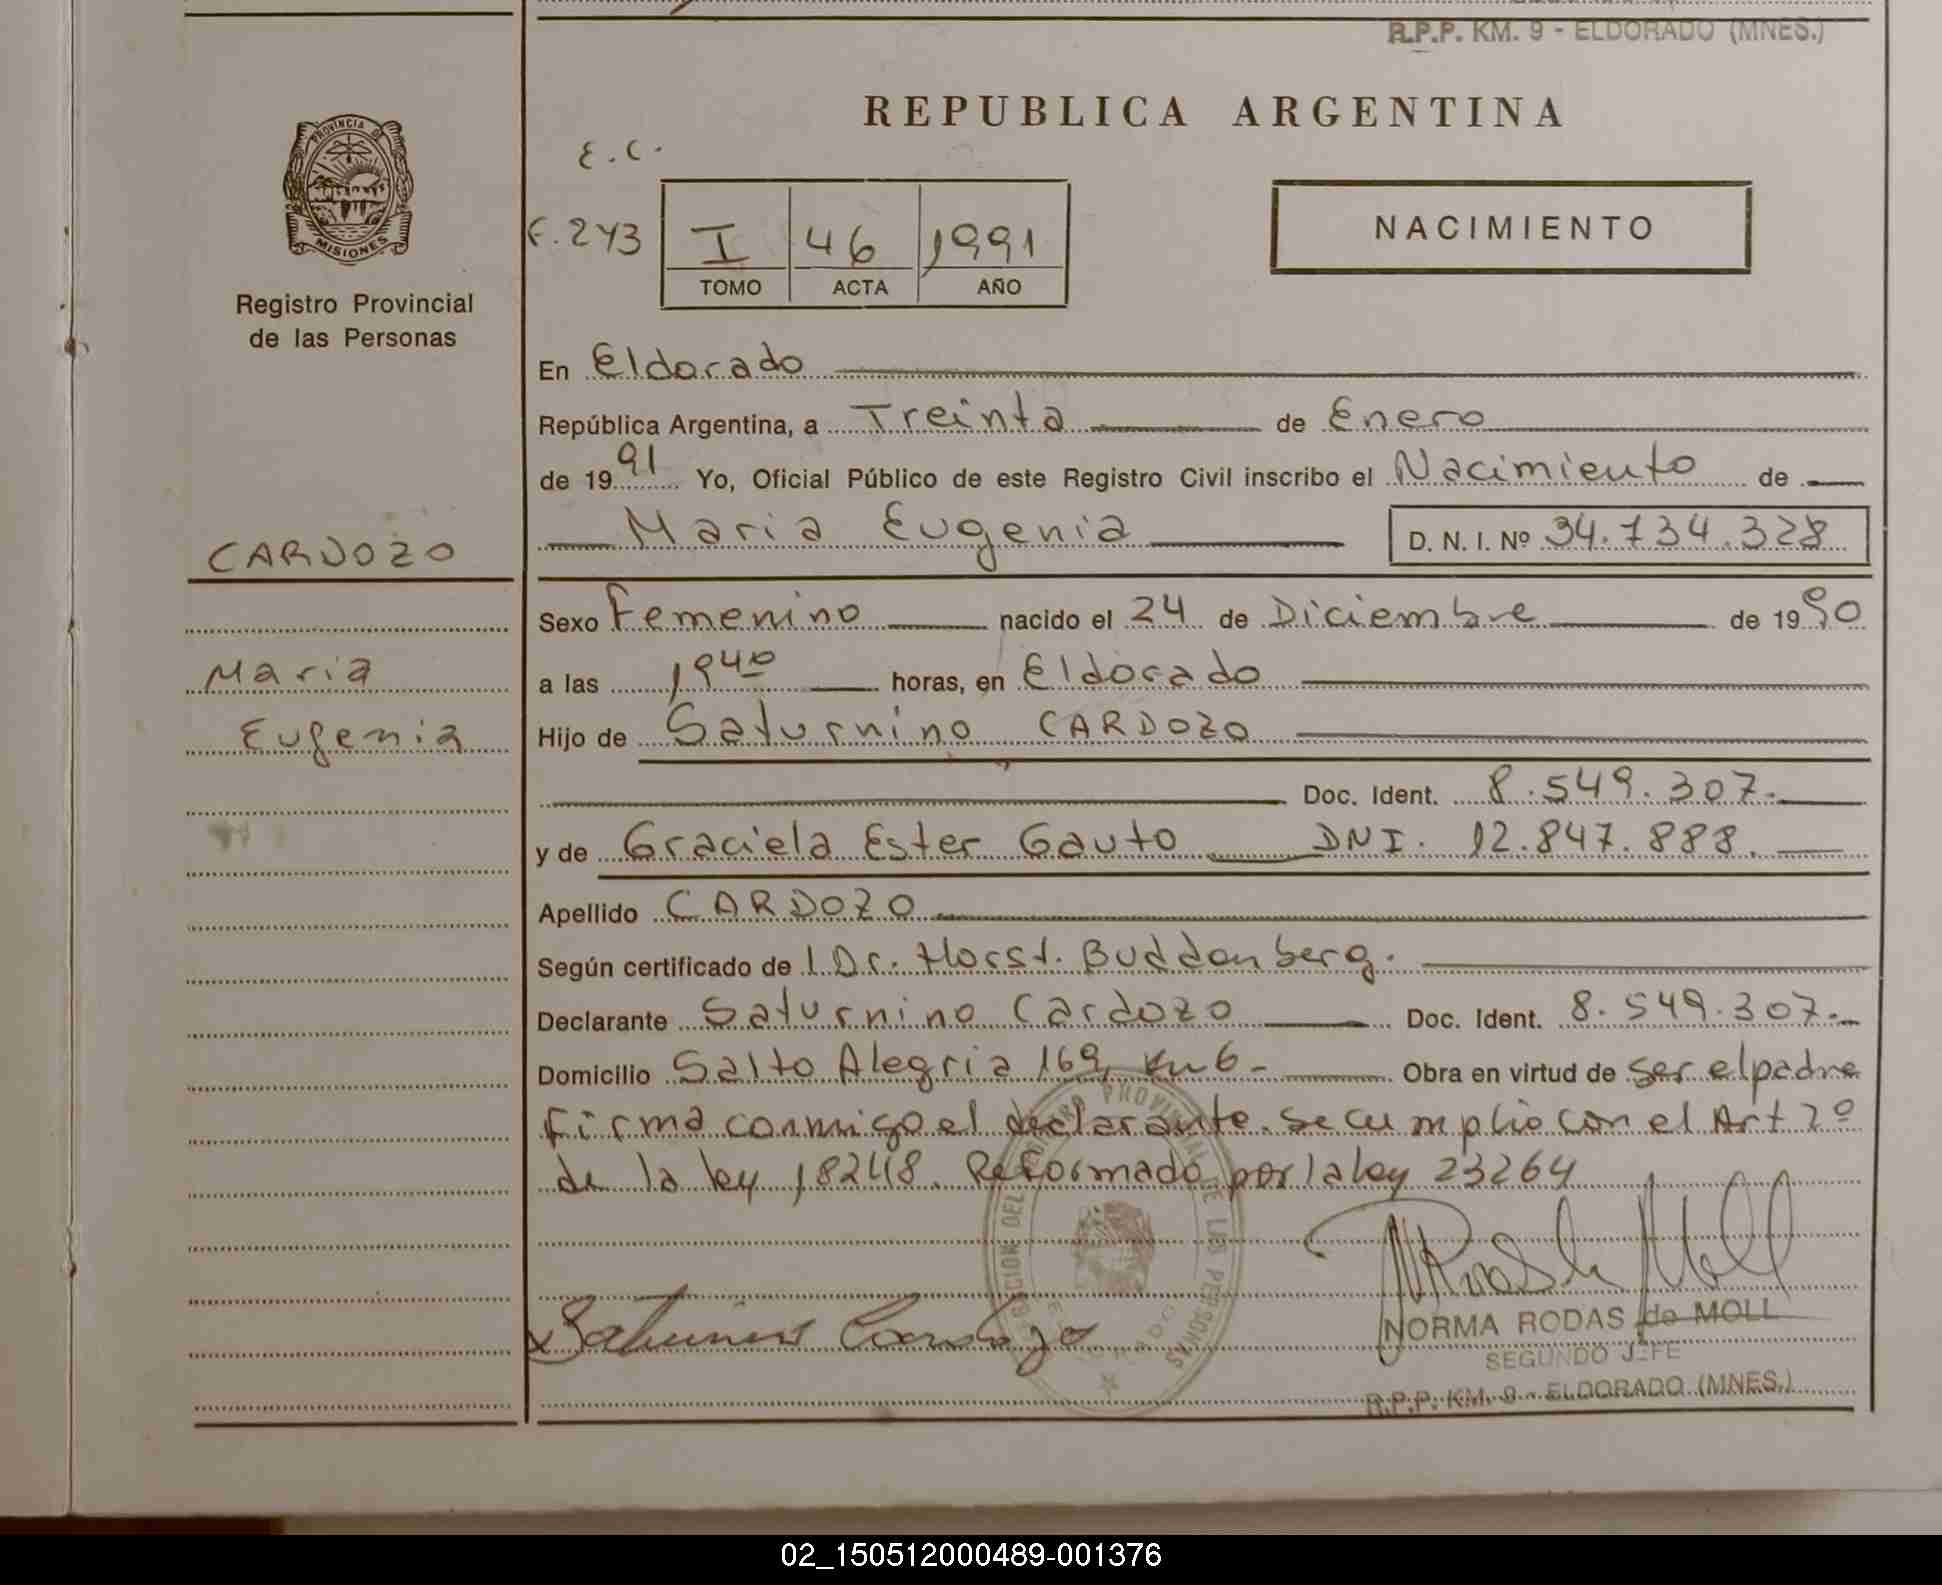 R.P.P. KM. 9 - ELDORADO (MNES.)
REPUBLICA ARGENTINA
PROVINCIA DE
MISIONES
Registro Provincial
de las Personas
E.C.
F. 243
I 46 1991
TOMO ACTA AÑO
NACIMIENTO
En Eldorado
República Argentina, a Treinta de Enero
de 1991 Yo, Oficial Público de este Registro Civil inscribo el Nacimiento de
CARDOZO
Maria Eugenia D. N. I. Nº 34.734.328
Sexo Femenino nacido el 24 de Diciembre de 1990
Maria
a las 1940 horas, en Eldorado
Eugenia
Hijo de Saturnino CARDOZO
Doc. Ident. 8.549.307.
y de Graciela Ester Gauto DNI. 12.847.888.
Apellido CARDOZO
Según certificado de l Dr. Horst. Buddenberg.
Declarante Saturnino Cardozo Doc. Ident. 8.549.307.
Domicilio Salto Alegria 169, Km 6 - Obra en virtud de ser el padre
Firma conmigo el declarante. se cumplio con el Art 2º
de la ley 18248. Reformado por la ley 23264
x Saturnino Cardozo
NORMA RODAS de MOLL
SEGUNDO JEFE
R.P.P. KM. 9 - ELDORADO (MNES.)
02_150512000489-001376